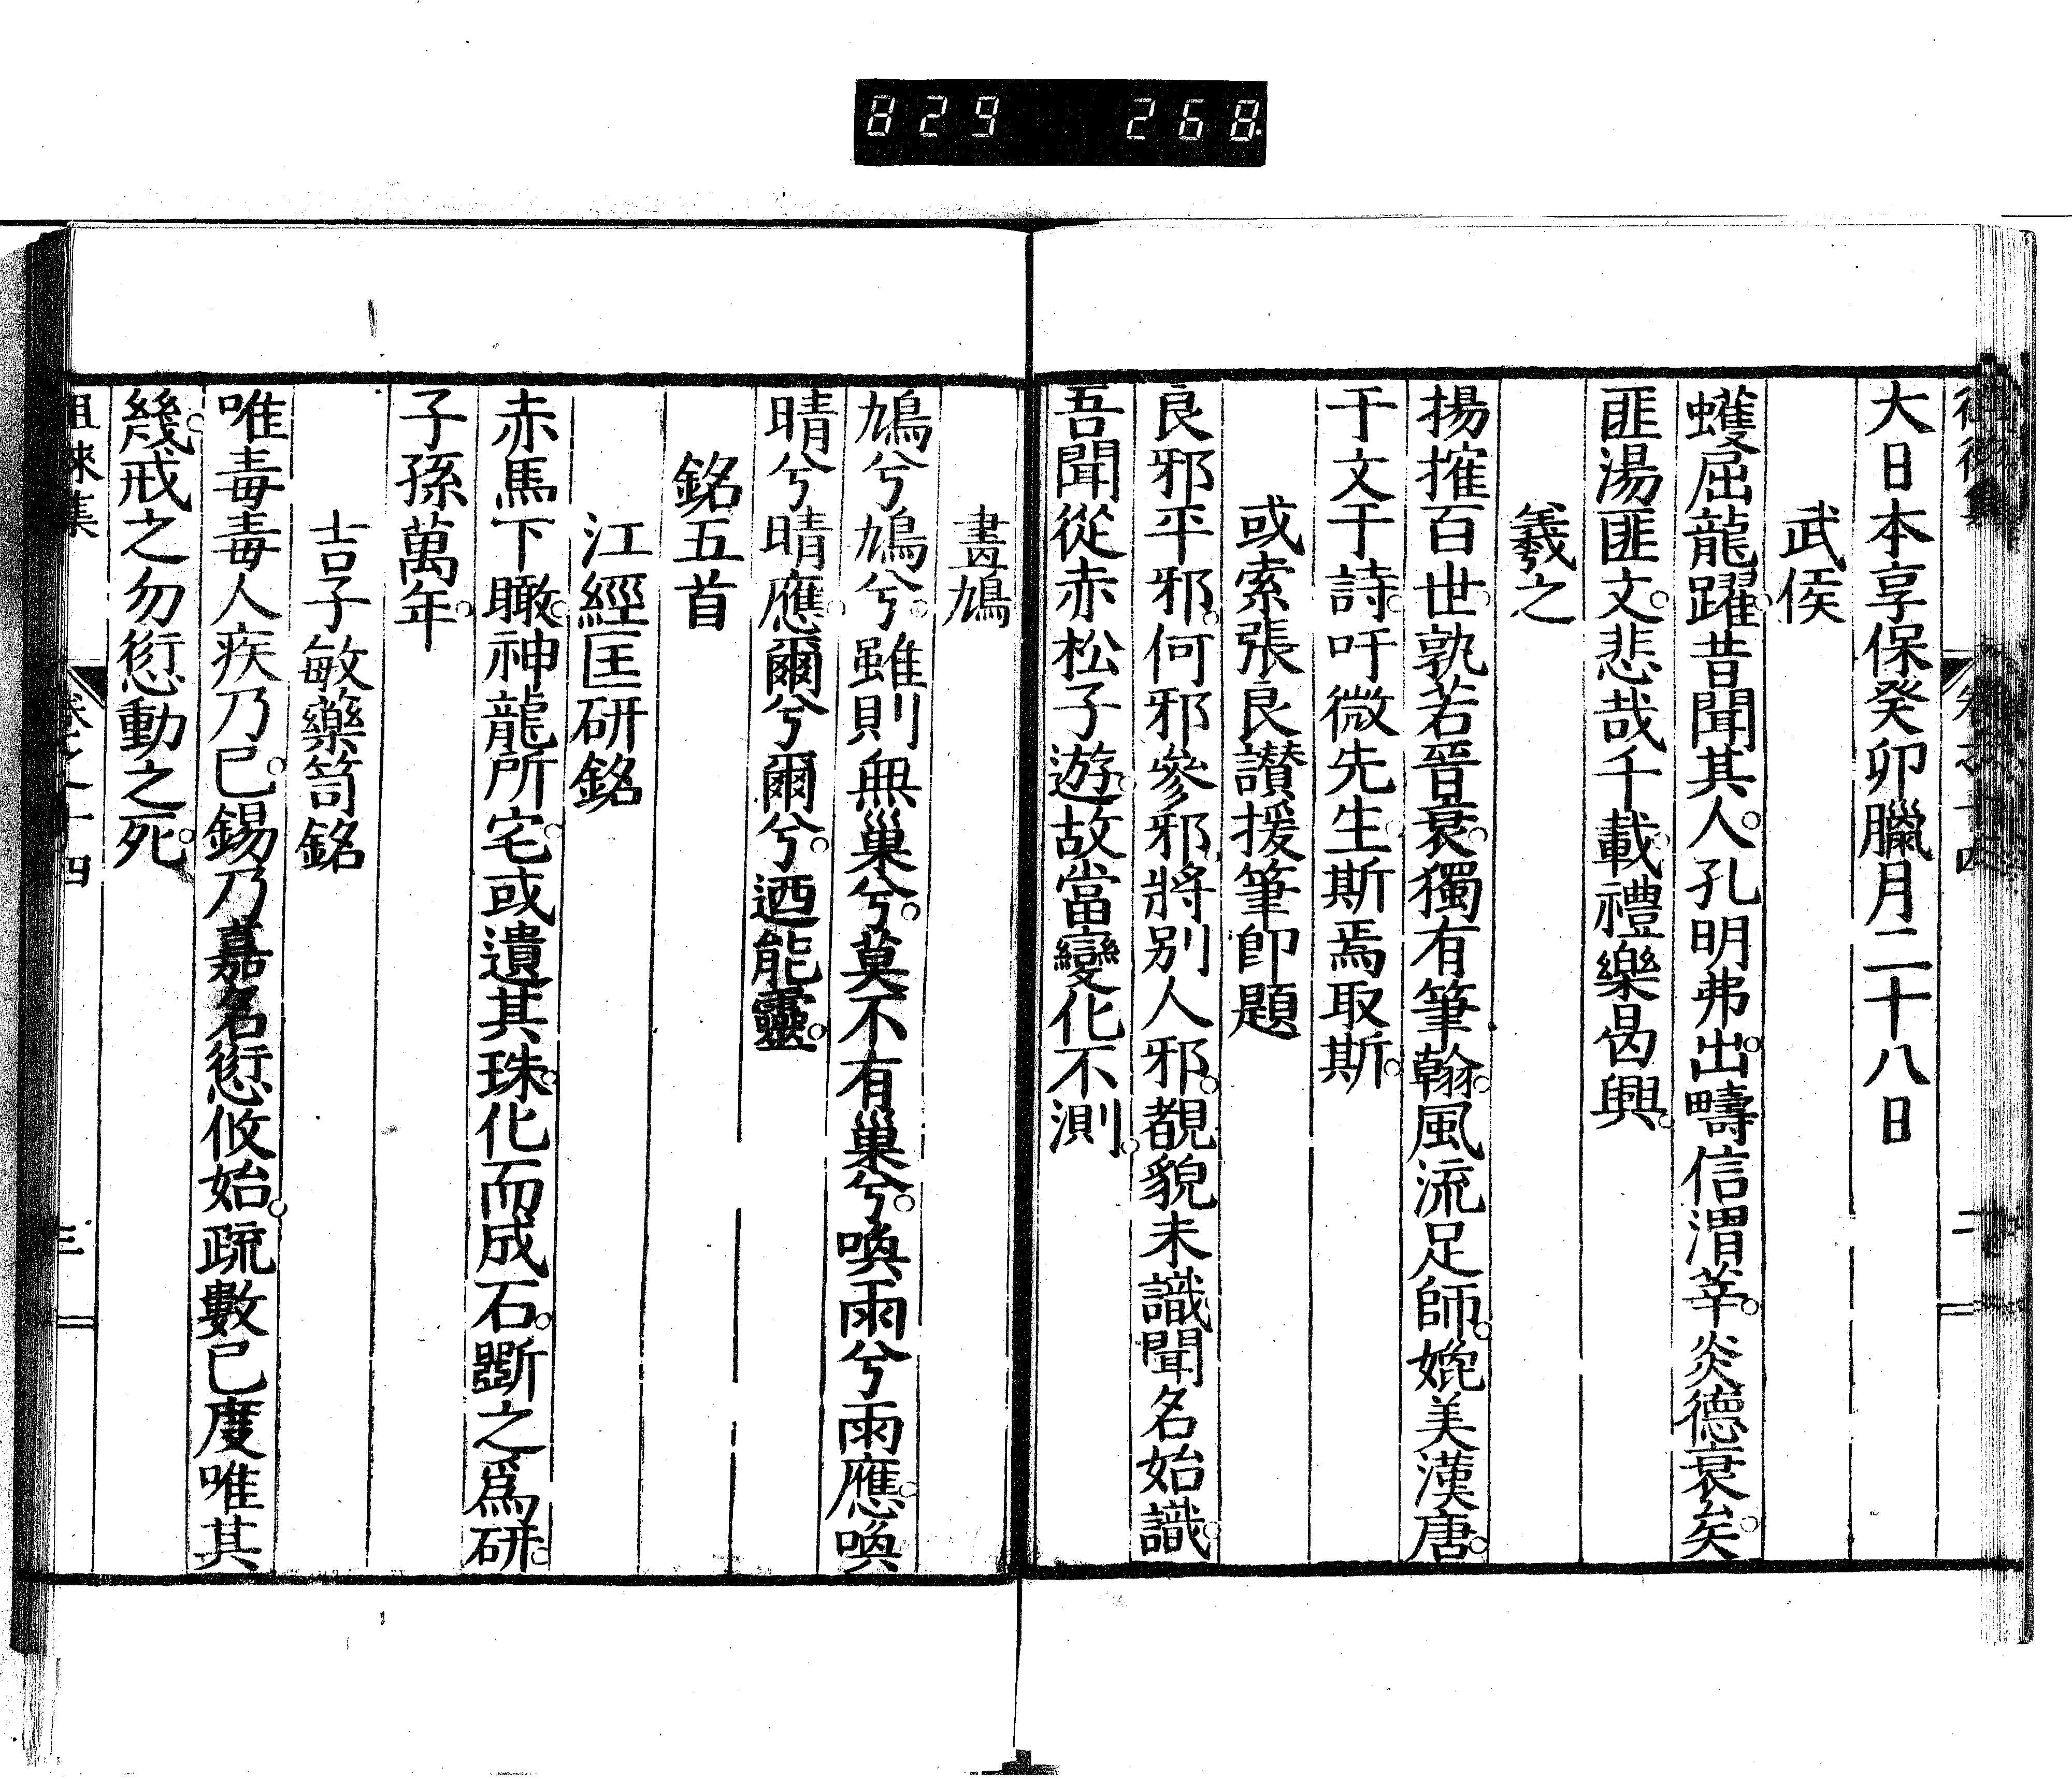 829 268
大日本享保癸卯臘月二十八日
武侯
蠖屈龍躍。昔聞其人。孔明弗出。疇信渭莘。炎德衰矣。
匪湯匪文。悲哉千載。禮樂曷興。
羲之
揚搉百世。孰若晉衰。獨有筆翰。風流足師。娩美漢唐。
于文于詩。吁微先生。斯焉取斯。
或索張良讃援筆卽題
良邪平邪。何邪參邪。將別人邪。覩貌未識。聞名始識。
吾聞從赤松子遊。故當變化不測。
畫鳩
鳩兮鳩兮。雖則無巢兮。莫不有巢兮。喚雨兮雨應。喚
晴兮晴應。爾兮爾兮。迺能靈。
銘五首
江經匡研銘
赤馬下瞰。神龍所宅。或遺其珠。化而成石。斲之爲研。
子孫萬年。
吉子敏藥笥銘
唯毒毒人疾乃已。錫乃嘉名愆攸始。疏數已度唯其
幾。戒之勿愆動之死。
徂徠集 卷之十四 三